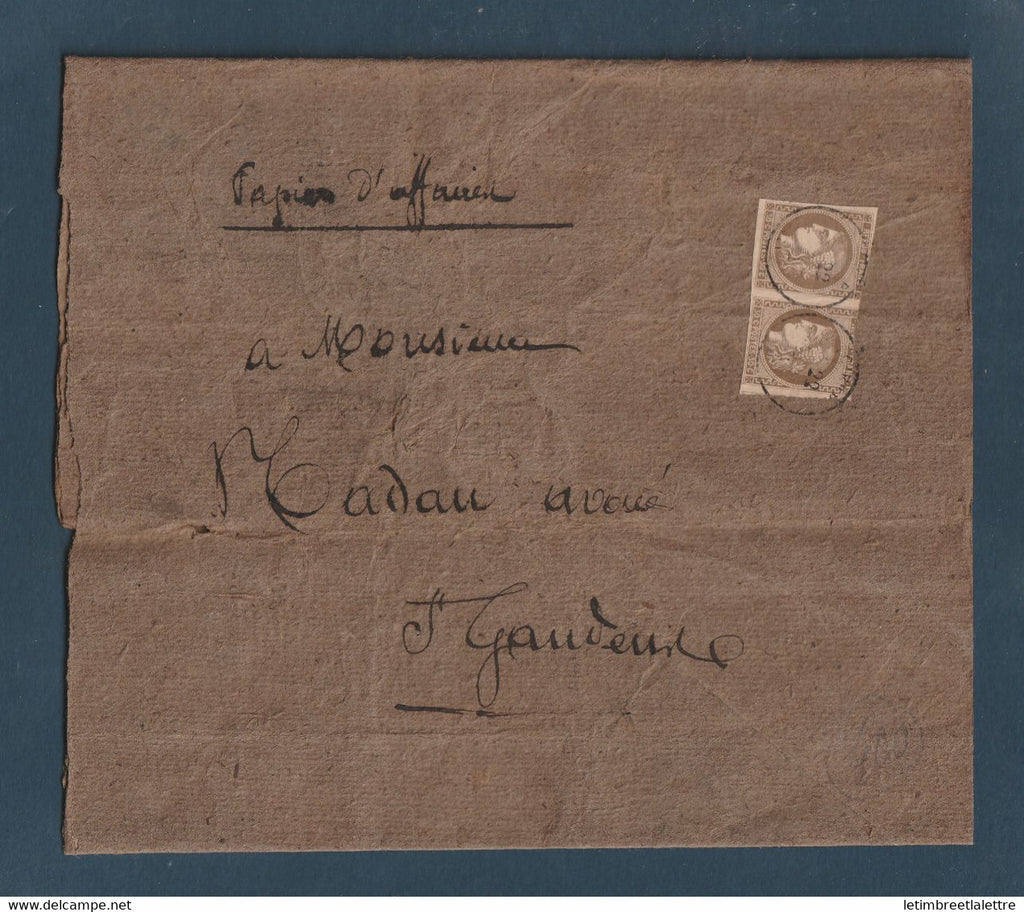 Papier d'affaires
a Monsieur
Madau avoué
St Gaudens
22
22
www.delcampe.net
letimbreetlalettre